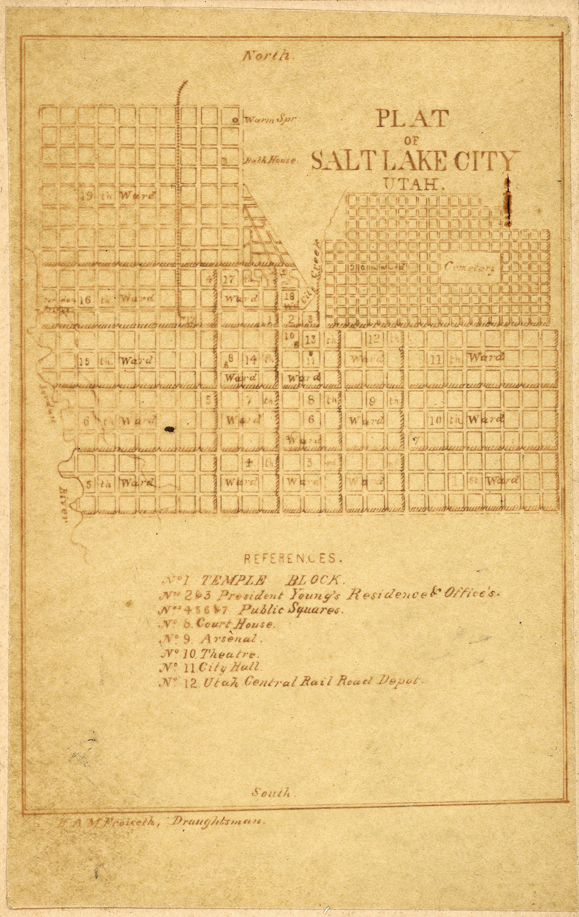 North.
PLAT
OF
SALT LAKE CITY
UTAH.
Warm Spr
Bath House
19 th Ward
City Creek
Cemetery
4 17 th
16 th Ward
Ward
18
1 2 3
10 13 th
12 th
15 th Ward
8 14 th
11
Ward
11 th Ward
Ward
Ward
5 7 th
8 th
9 th
6 th Ward
Ward
6
Ward
10 th Ward
Ward
4 th
3 rd
5 th Ward
Ward
Ward
Ward
1 st Ward
River
REFERENCES.
No 1 TEMPLE BLOCK.
Nos 2 & 3 President Young's Residence & Office's.
Nos 4 5 6 & 7 Public Squares.
No 8. Court House.
No 9. Arsenal.
No 10. Theatre.
No 11 City Hall.
No 12. Utah Central Rail Road Depot.
South.
A. M. Froiseth, Draughtsman.